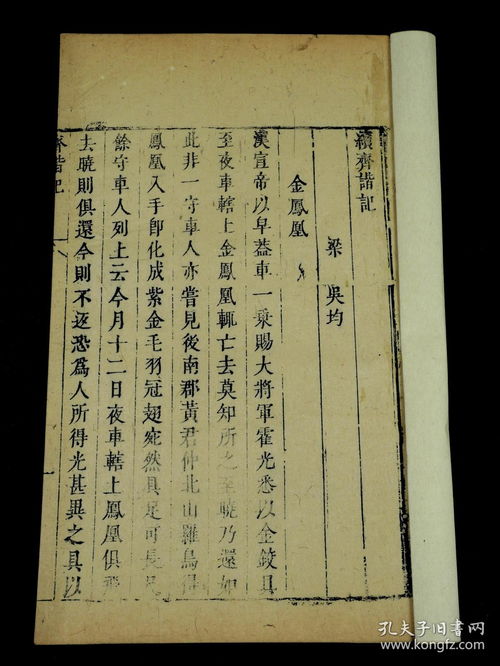 續齊諧記
梁 吳均
金鳳凰
漢宣帝以皁葢車一乗賜大將軍霍光悉以金鉸具
至夜車轄上金鳳凰輒亡去莫知所之至曉乃還如
此非一守車人亦嘗見後南郡黃君仲北山羅鳥得
鳳凰入手卽化成紫金毛羽冠翅宛然具足可長尺
餘守車人列上云今月十二日夜車轄上鳳凰俱飛
去曉則俱還今則不返恐爲人所得光甚異之具以
齊諧記
孔夫子旧书网
www.kongfz.com